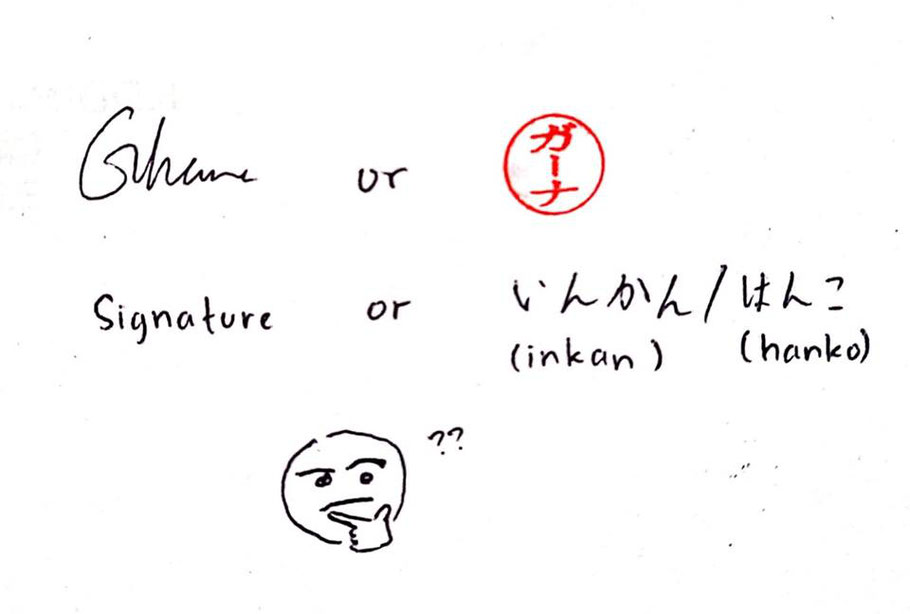 Ghana or ガーナ
Signature or いんかん/はんこ
(inkan) (hanko)
??